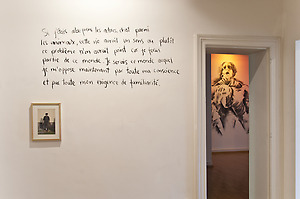 Si j'étais arbre parmi les arbres, chat parmi
les animaux, cette vie aurait un sens ou plutôt
ce problème n'en aurait point car je ferais
partie de ce monde. Je serais ce monde auquel
je m'oppose maintenant par toute ma conscience
et par toute mon exigence de familiarité.